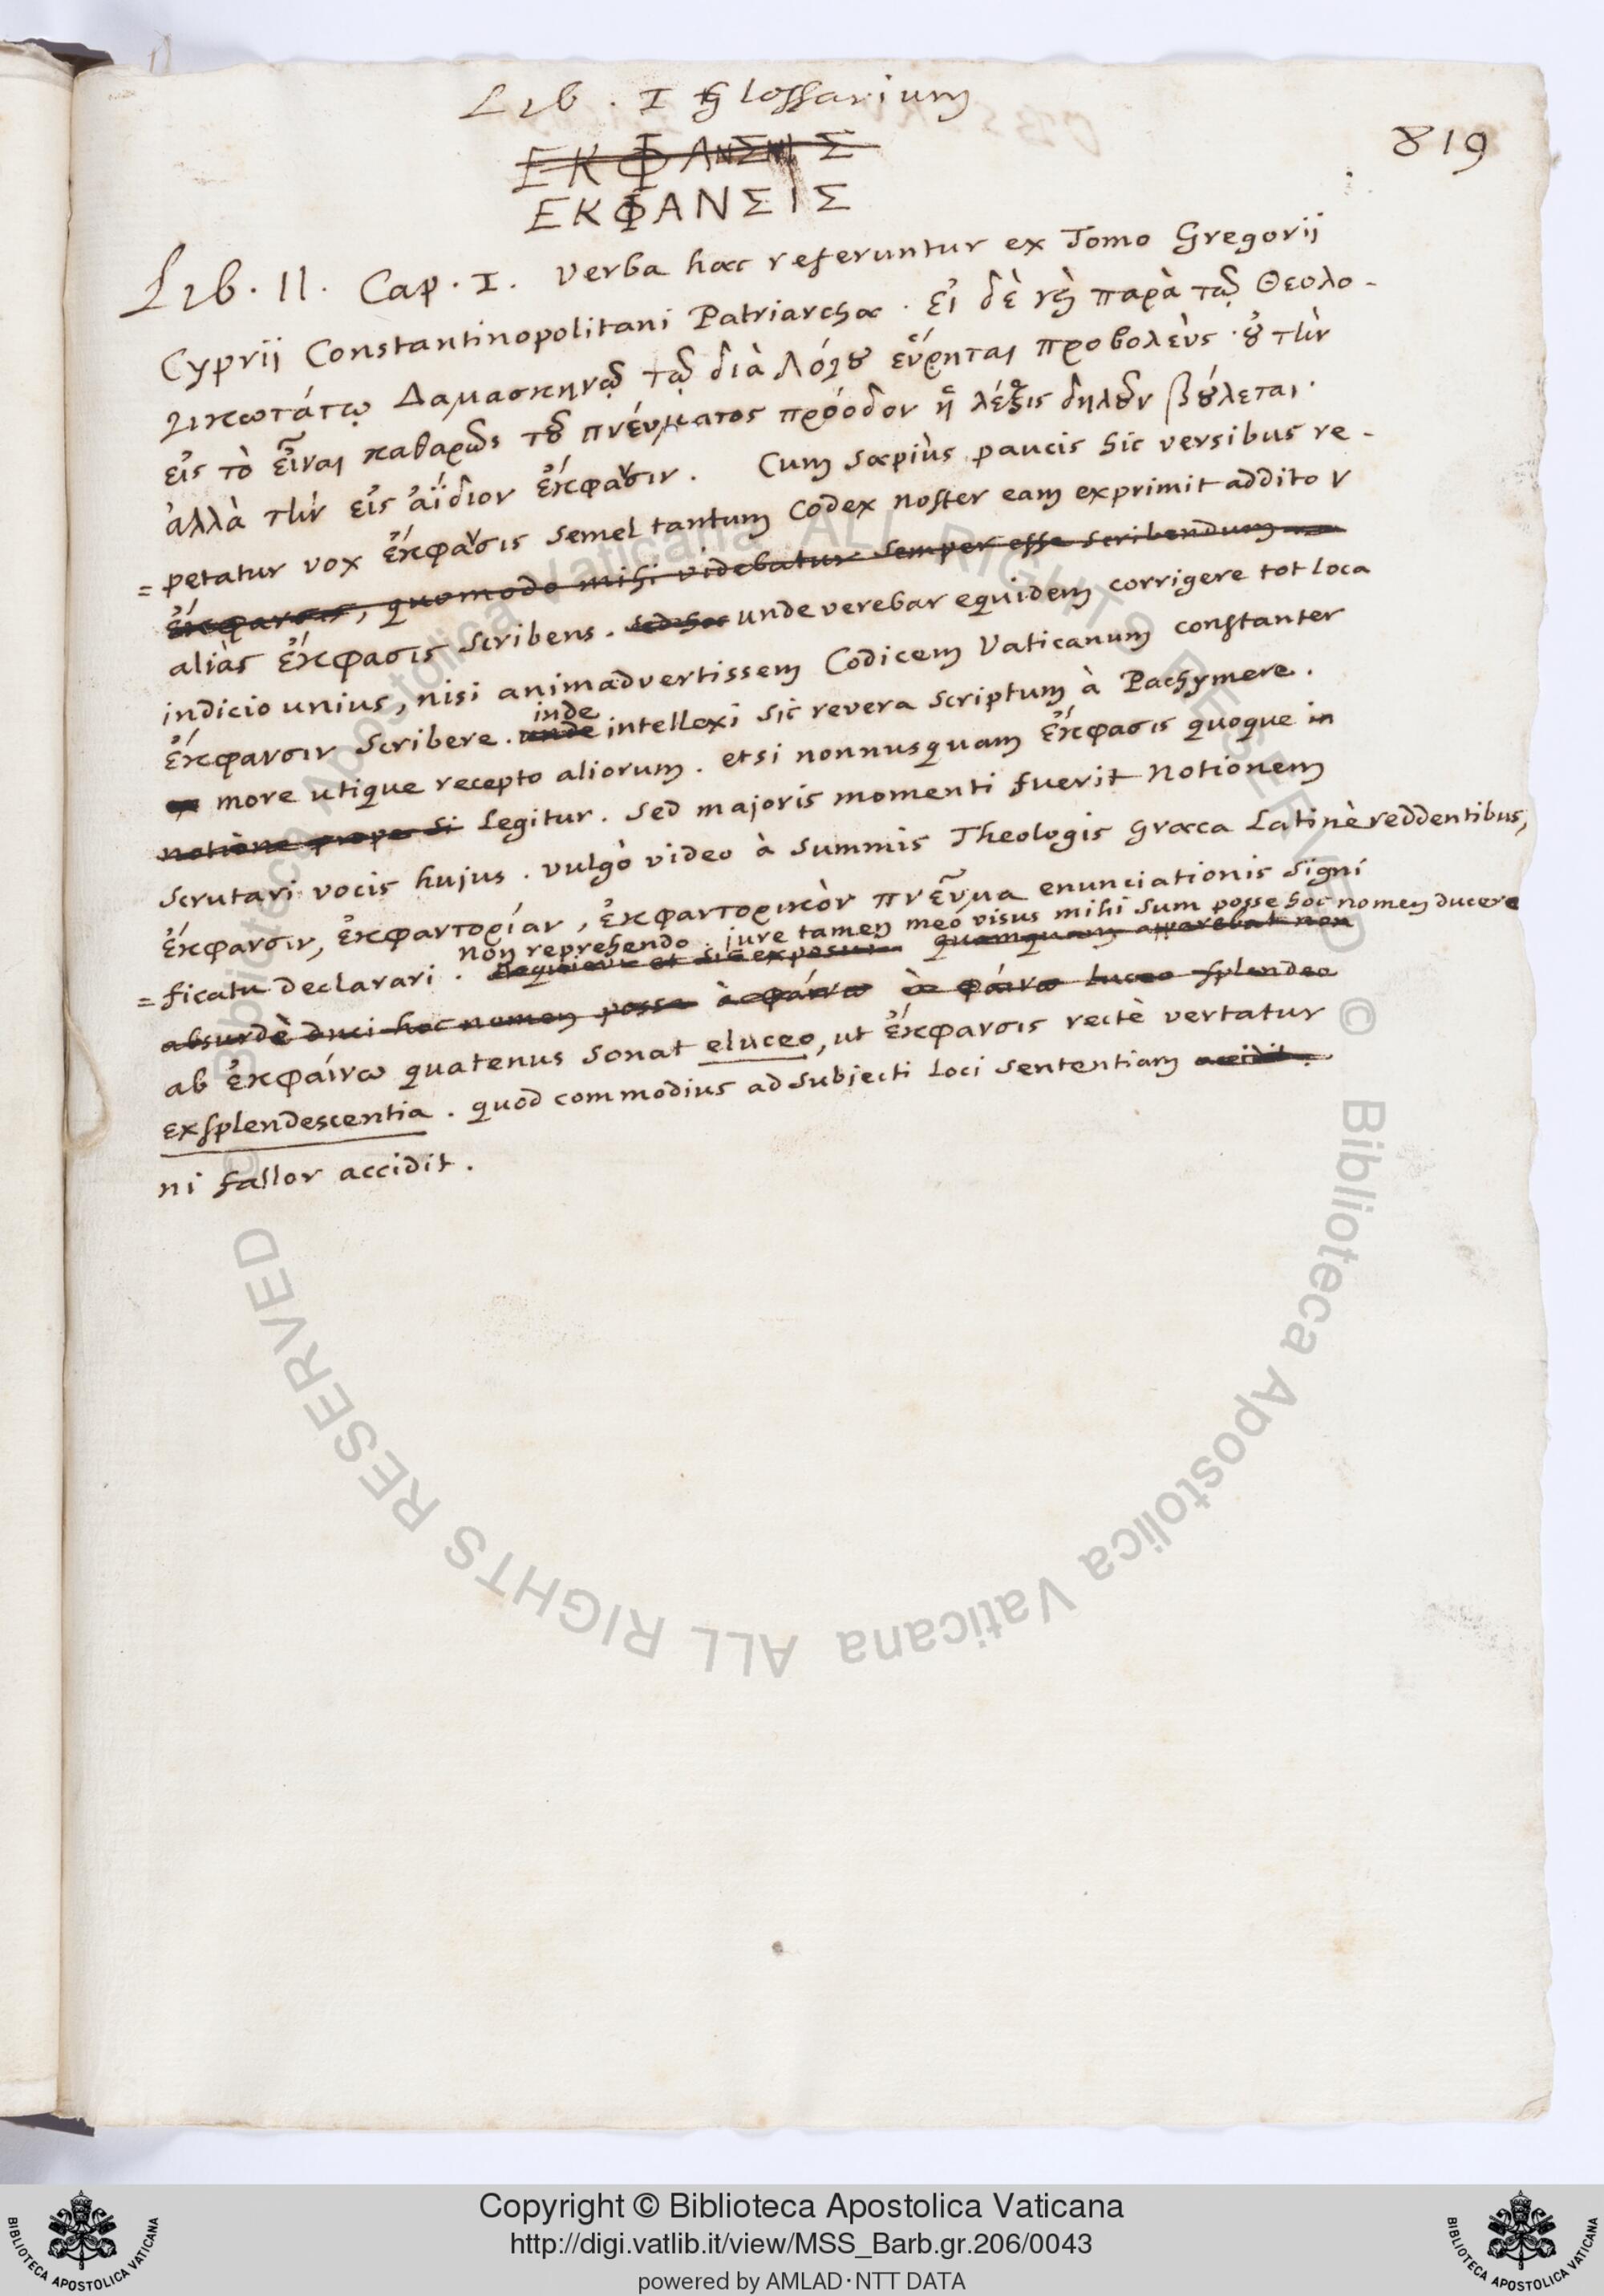 Lib. I Glossarium
819
ΕΚΦΑΝΣΙΣ
Lib. II. Cap. I. Verba hæc referuntur ex Tomo Gregorij
Cyprij Constantinopolitani Patriarchæ. εἰ δὲ καὶ παρὰ τῷ Θεολο-
γικωτάτῳ Δαμασκηνῷ τῷ διὰ Λόγου εὕρηται προβολεὺς. οὐ τὴν
εἰς τὸ εἶναι καθαρῶς τοῦ πνεύματος πρόοδον ἡ λέξις δηλοῦν βούλεται.
ἀλλὰ τὴν εἰς ἀΐδιον ἔκφανσιν. Cum sæpiùs paucis hic versibus re-
=petatur vox ἔκφανσις semel tantum Codex noster eam exprimit addito ν
ἔκφανσις, quomodo mihi videbatur semper esse scribendum
aliàs ἔκφασις scribens. sed hoc unde verebar equidem corrigere tot loca
indicio unius, nisi animadvertissem Codicem Vaticanum constanter
inde
ἔκφανσιν scribere. unde intellexi sic revera scriptum à Pachymere.
more utique recepto aliorum. etsi nonnusquam ἔκφασις quoque in
notione prope si legitur. Sed majoris momenti fuerit notionem
scrutari vocis hujus. vulgò video à summis Theologis Græca Latinè reddentibus,
ἔκφανσιν, ἐκφαντορίαν, ἐκφαντορικὸν πνεῦμα enunciationis signi
non reprehendo. jure tamen meo visus mihi sum posse hoc nomen ducere
=ficatu declarari. et sic exposui. quamquam apparebat non
absurdè duci hoc nomen posse à φαίνω luceo splendeo
ab ἐκφαίνω quatenus sonat eluceo, ut ἔκφανσις rectè vertatur
exsplendescentia. quod commodius ad subjecti loci sententiam accidit.
ni fallor accidit.
© Biblioteca Apostolica Vaticana ALL RIGHTS RESERVED
© Biblioteca Apostolica Vaticana ALL RIGHTS RESERVED
Copyright © Biblioteca Apostolica Vaticana
http://digi.vatlib.it/view/MSS_Barb.gr.206/0043
powered by AMLAD·NTT DATA
BIBLIOTECA APOSTOLICA VATICANA
BIBLIOTECA APOSTOLICA VATICANA